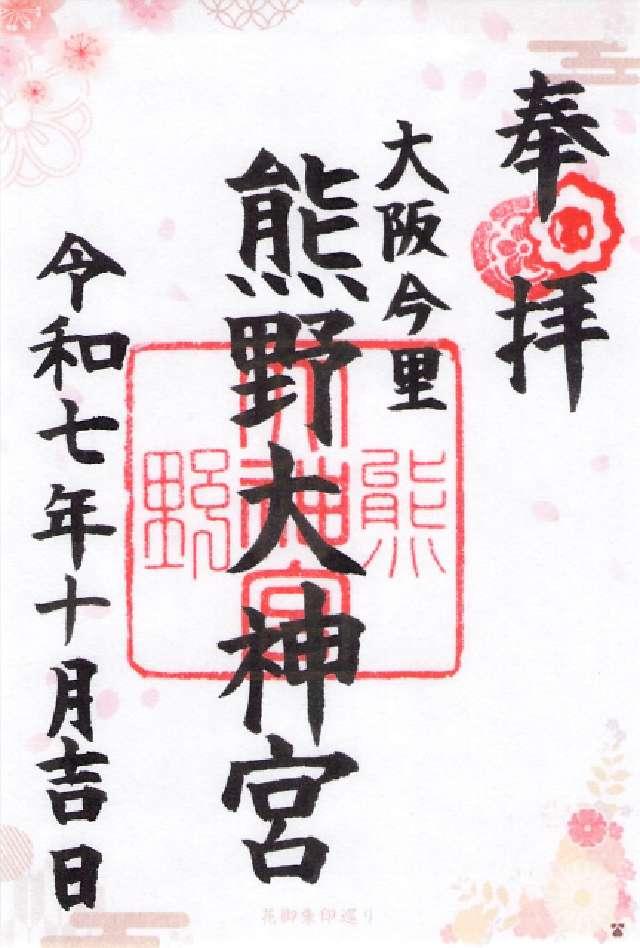 奉拝
大阪今里
熊野大神宮
令和七年十月吉日
熊
大神宮
野
花御朱印巡り